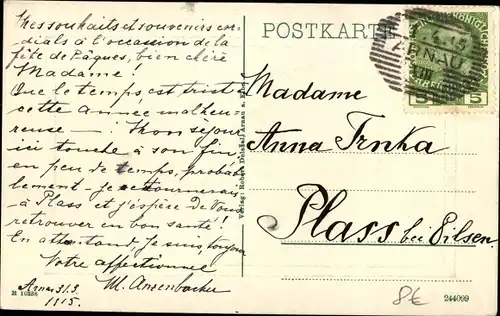 Mes souhaits et souvenirs cor-
dials à l'occasion de la
fête de Pâques, bien chère
Madame!
Que le temps est triste
cette année malheu-
reuse – Mon sejour
ici touche à son fin,
en peu de temps, probab-
lement – je retournerais
à Plass et j'espère de Vous
retrouver en bon santé!
En attendant je suis, toujour
Votre affectionnée
M. Anzenbacher
Arnau 31.3.
1915.
R 10338
Verlag: Robert Doležal, Arnau a. Elbe
POSTKARTE
4.4.15
ARNAU
5 5
Madame
Anna Trnka
Plass bei Pilsen
8€
244099